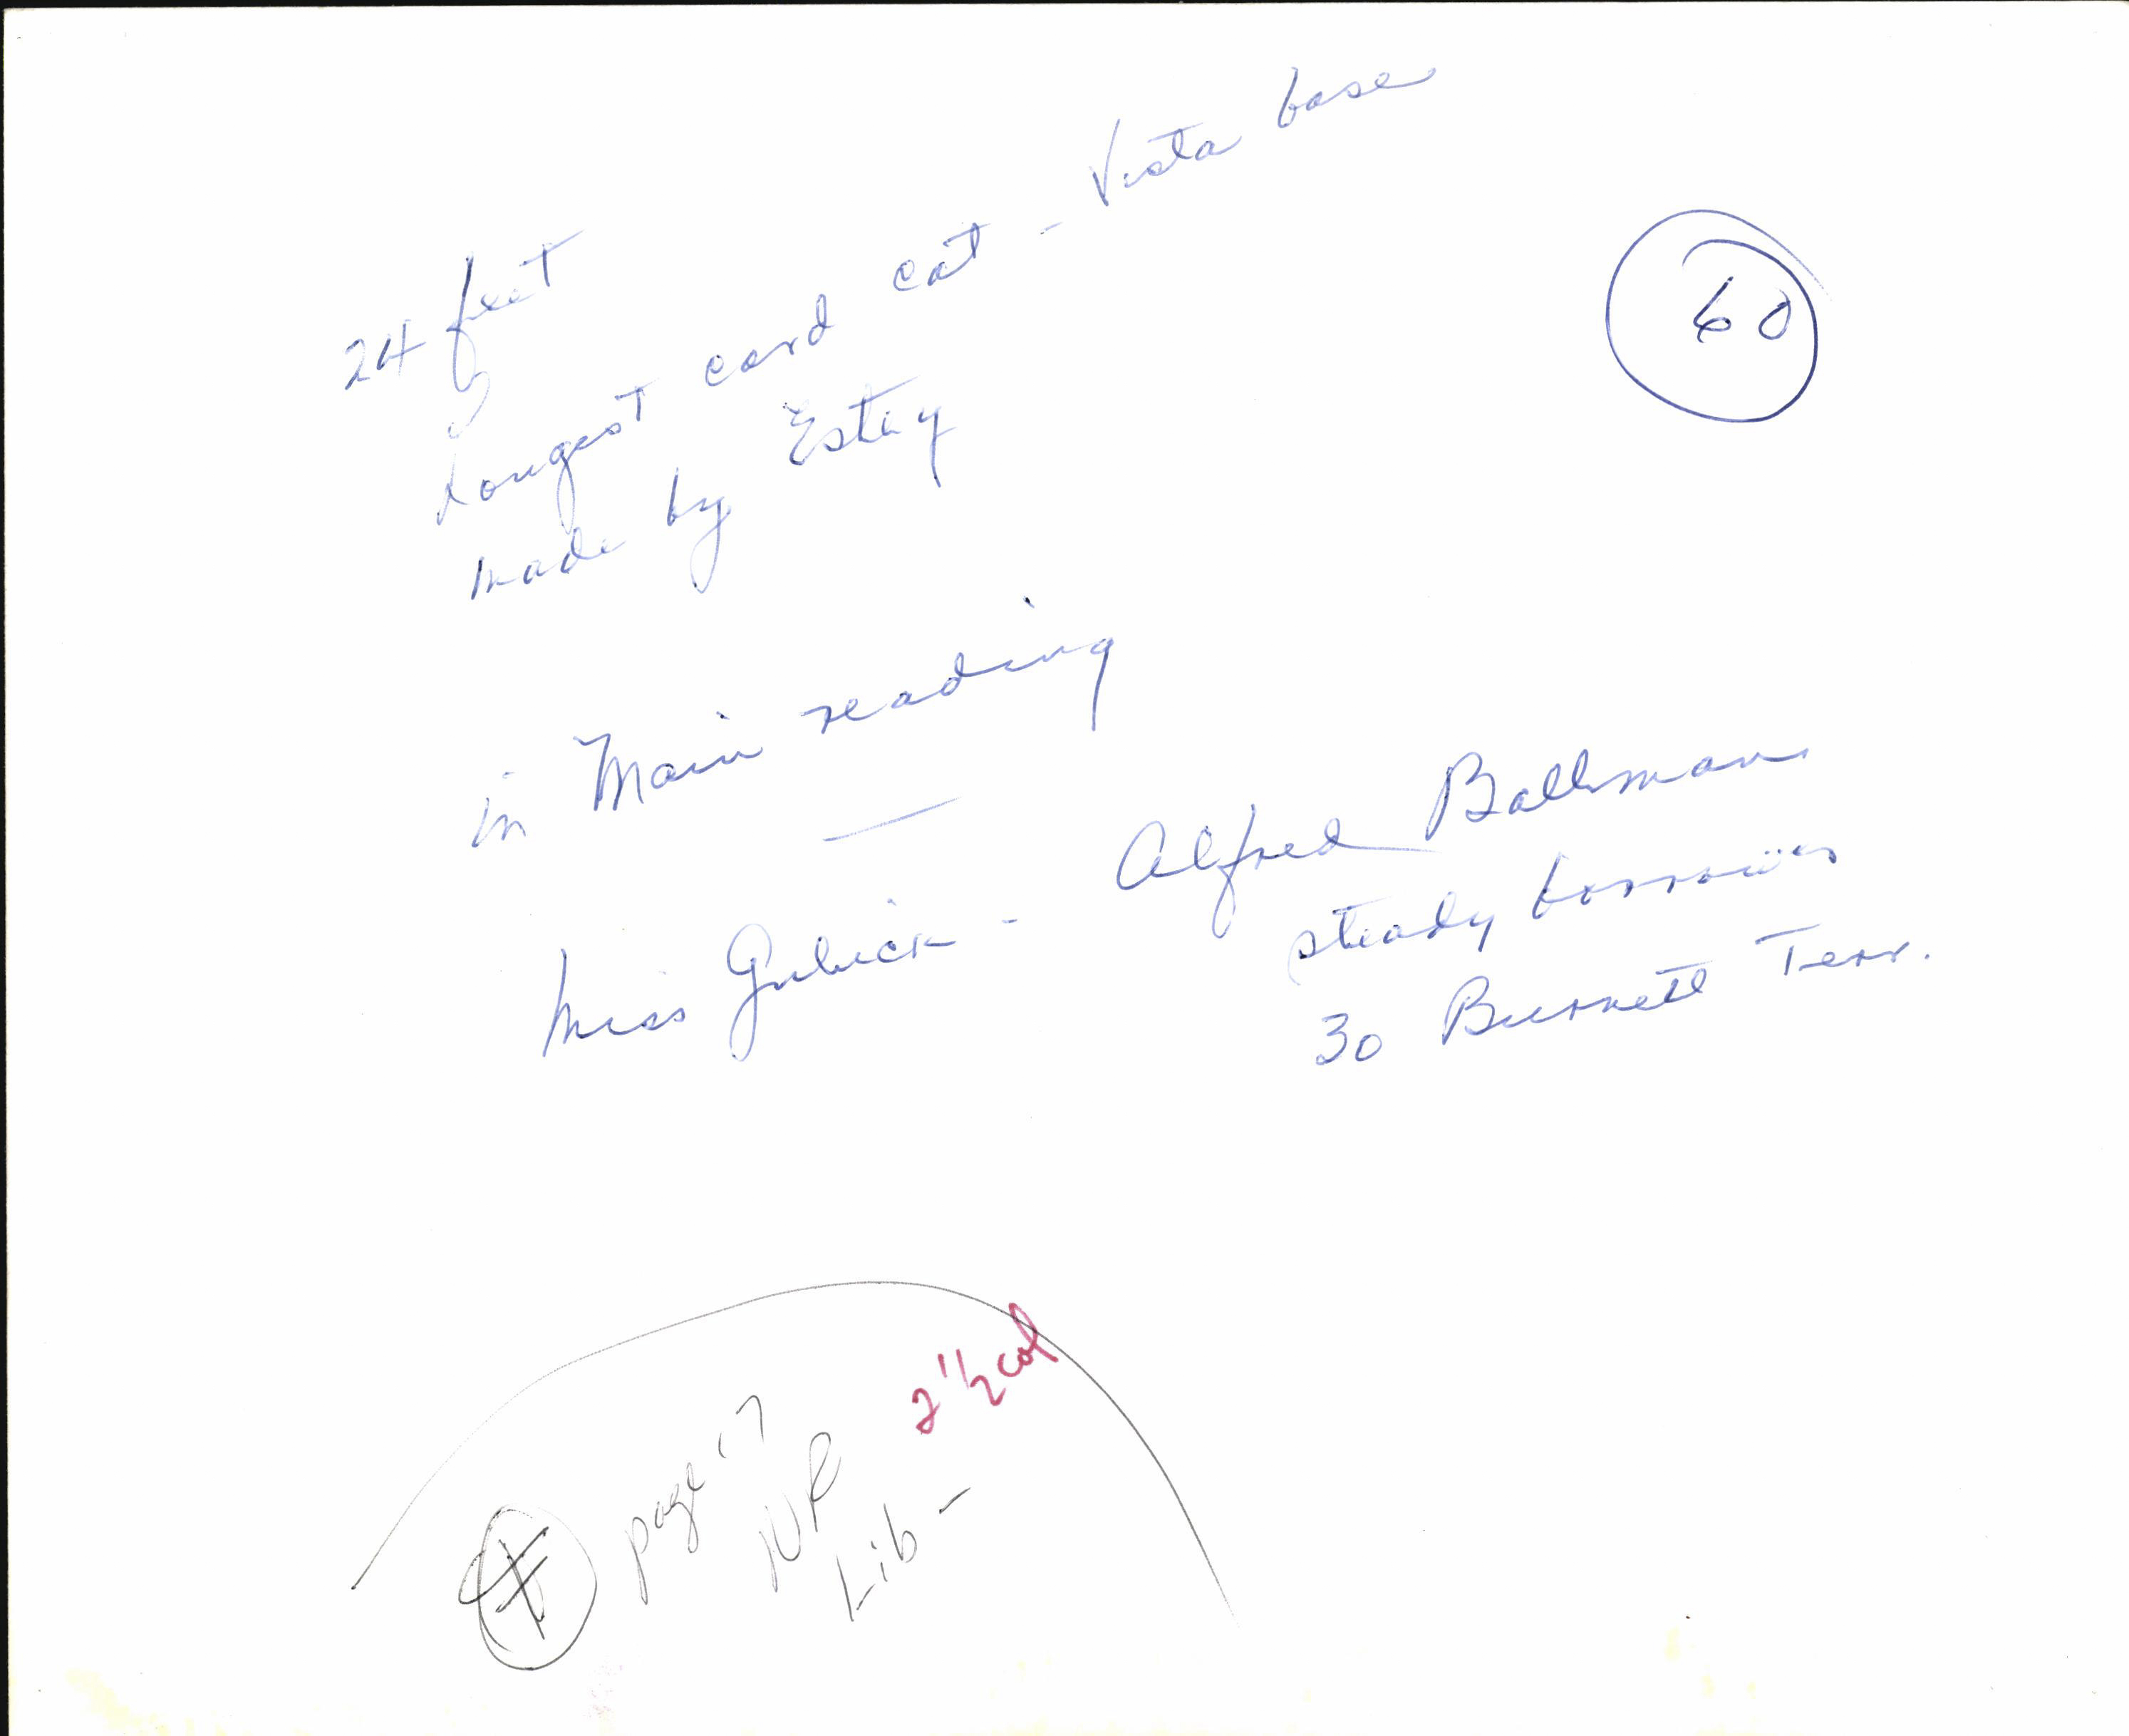 24 feet
Longest card cat - Vista base
made by Estey
60
in Main reading
Miss Gulick - Alfred Ballman
steady borrower
30 Burnett Terr.
2 1/2 col
page 17
NR
Lib -